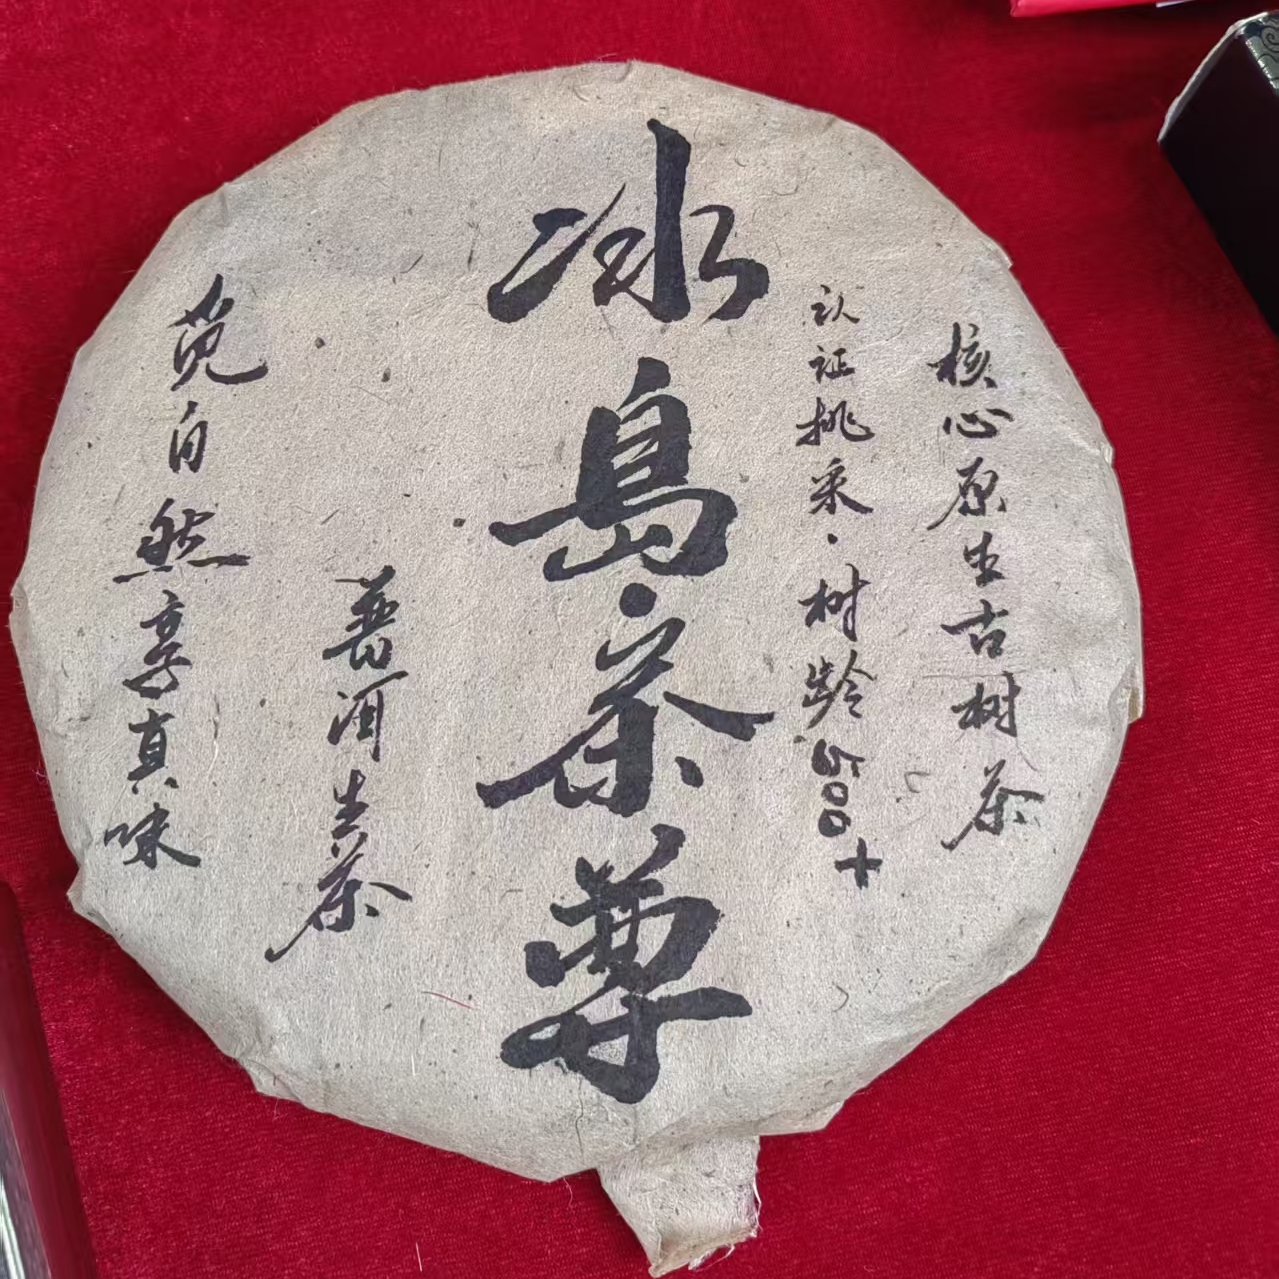 核心原生古树茶
认证挑采·树龄500+
冰島·茶尊
普洱生茶
觅自然享真味